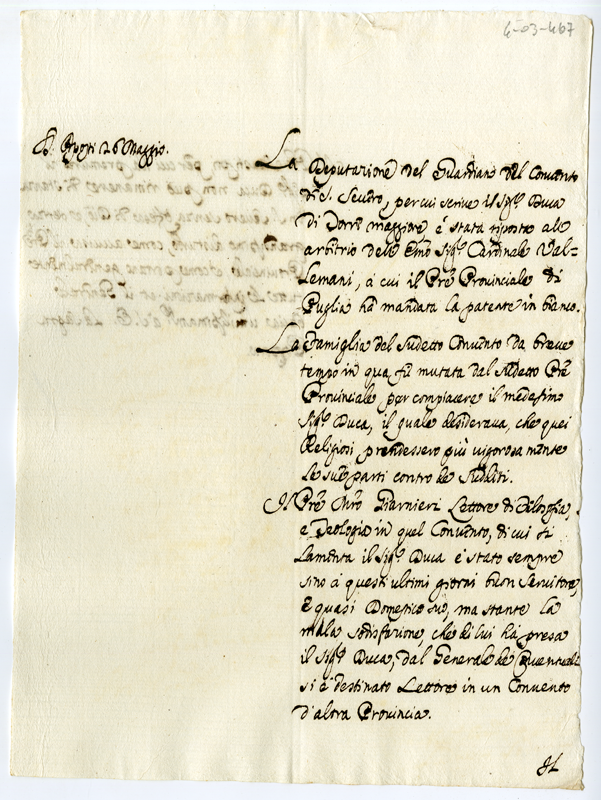 4-03-467
Agosti 26 Maggio.
La Deputazione del Guardian del Convento
di S. Severo, per cui scrive il Sigr. Duca
di Torre maggiore è stata riposta all'
arbitrio dell' Emo Sigr. Cardinale Val-
lemani, à cui il Prê Provinciale di
Puglia hà mandata la patente in bianco.
La Famiglia del sudetto Convento da breve
tempo in qua, fù mutata dal sudetto Prê
Provinciale per compiacere il medesimo
Sigr. Duca, il quale desiderava, che quei
Religiosi prendessero più vigorosamente
le sue parti contro de sudditi.
Il Prê Mro Guarnieri Lettore di Filosofia,
e Teologia in quel Convento, di cui si
lamenta il Sigr. Duca è stato sempre
sino à questi ultimi giorni buon Servitore,
e quasi Domestico suo, ma stante la
mala sodisfazione, che di lui hà presa
il Sigr. Duca, dal Generale de Conventuali
si è destinato Lettore in un Convento
d'altra Provincia.
Il